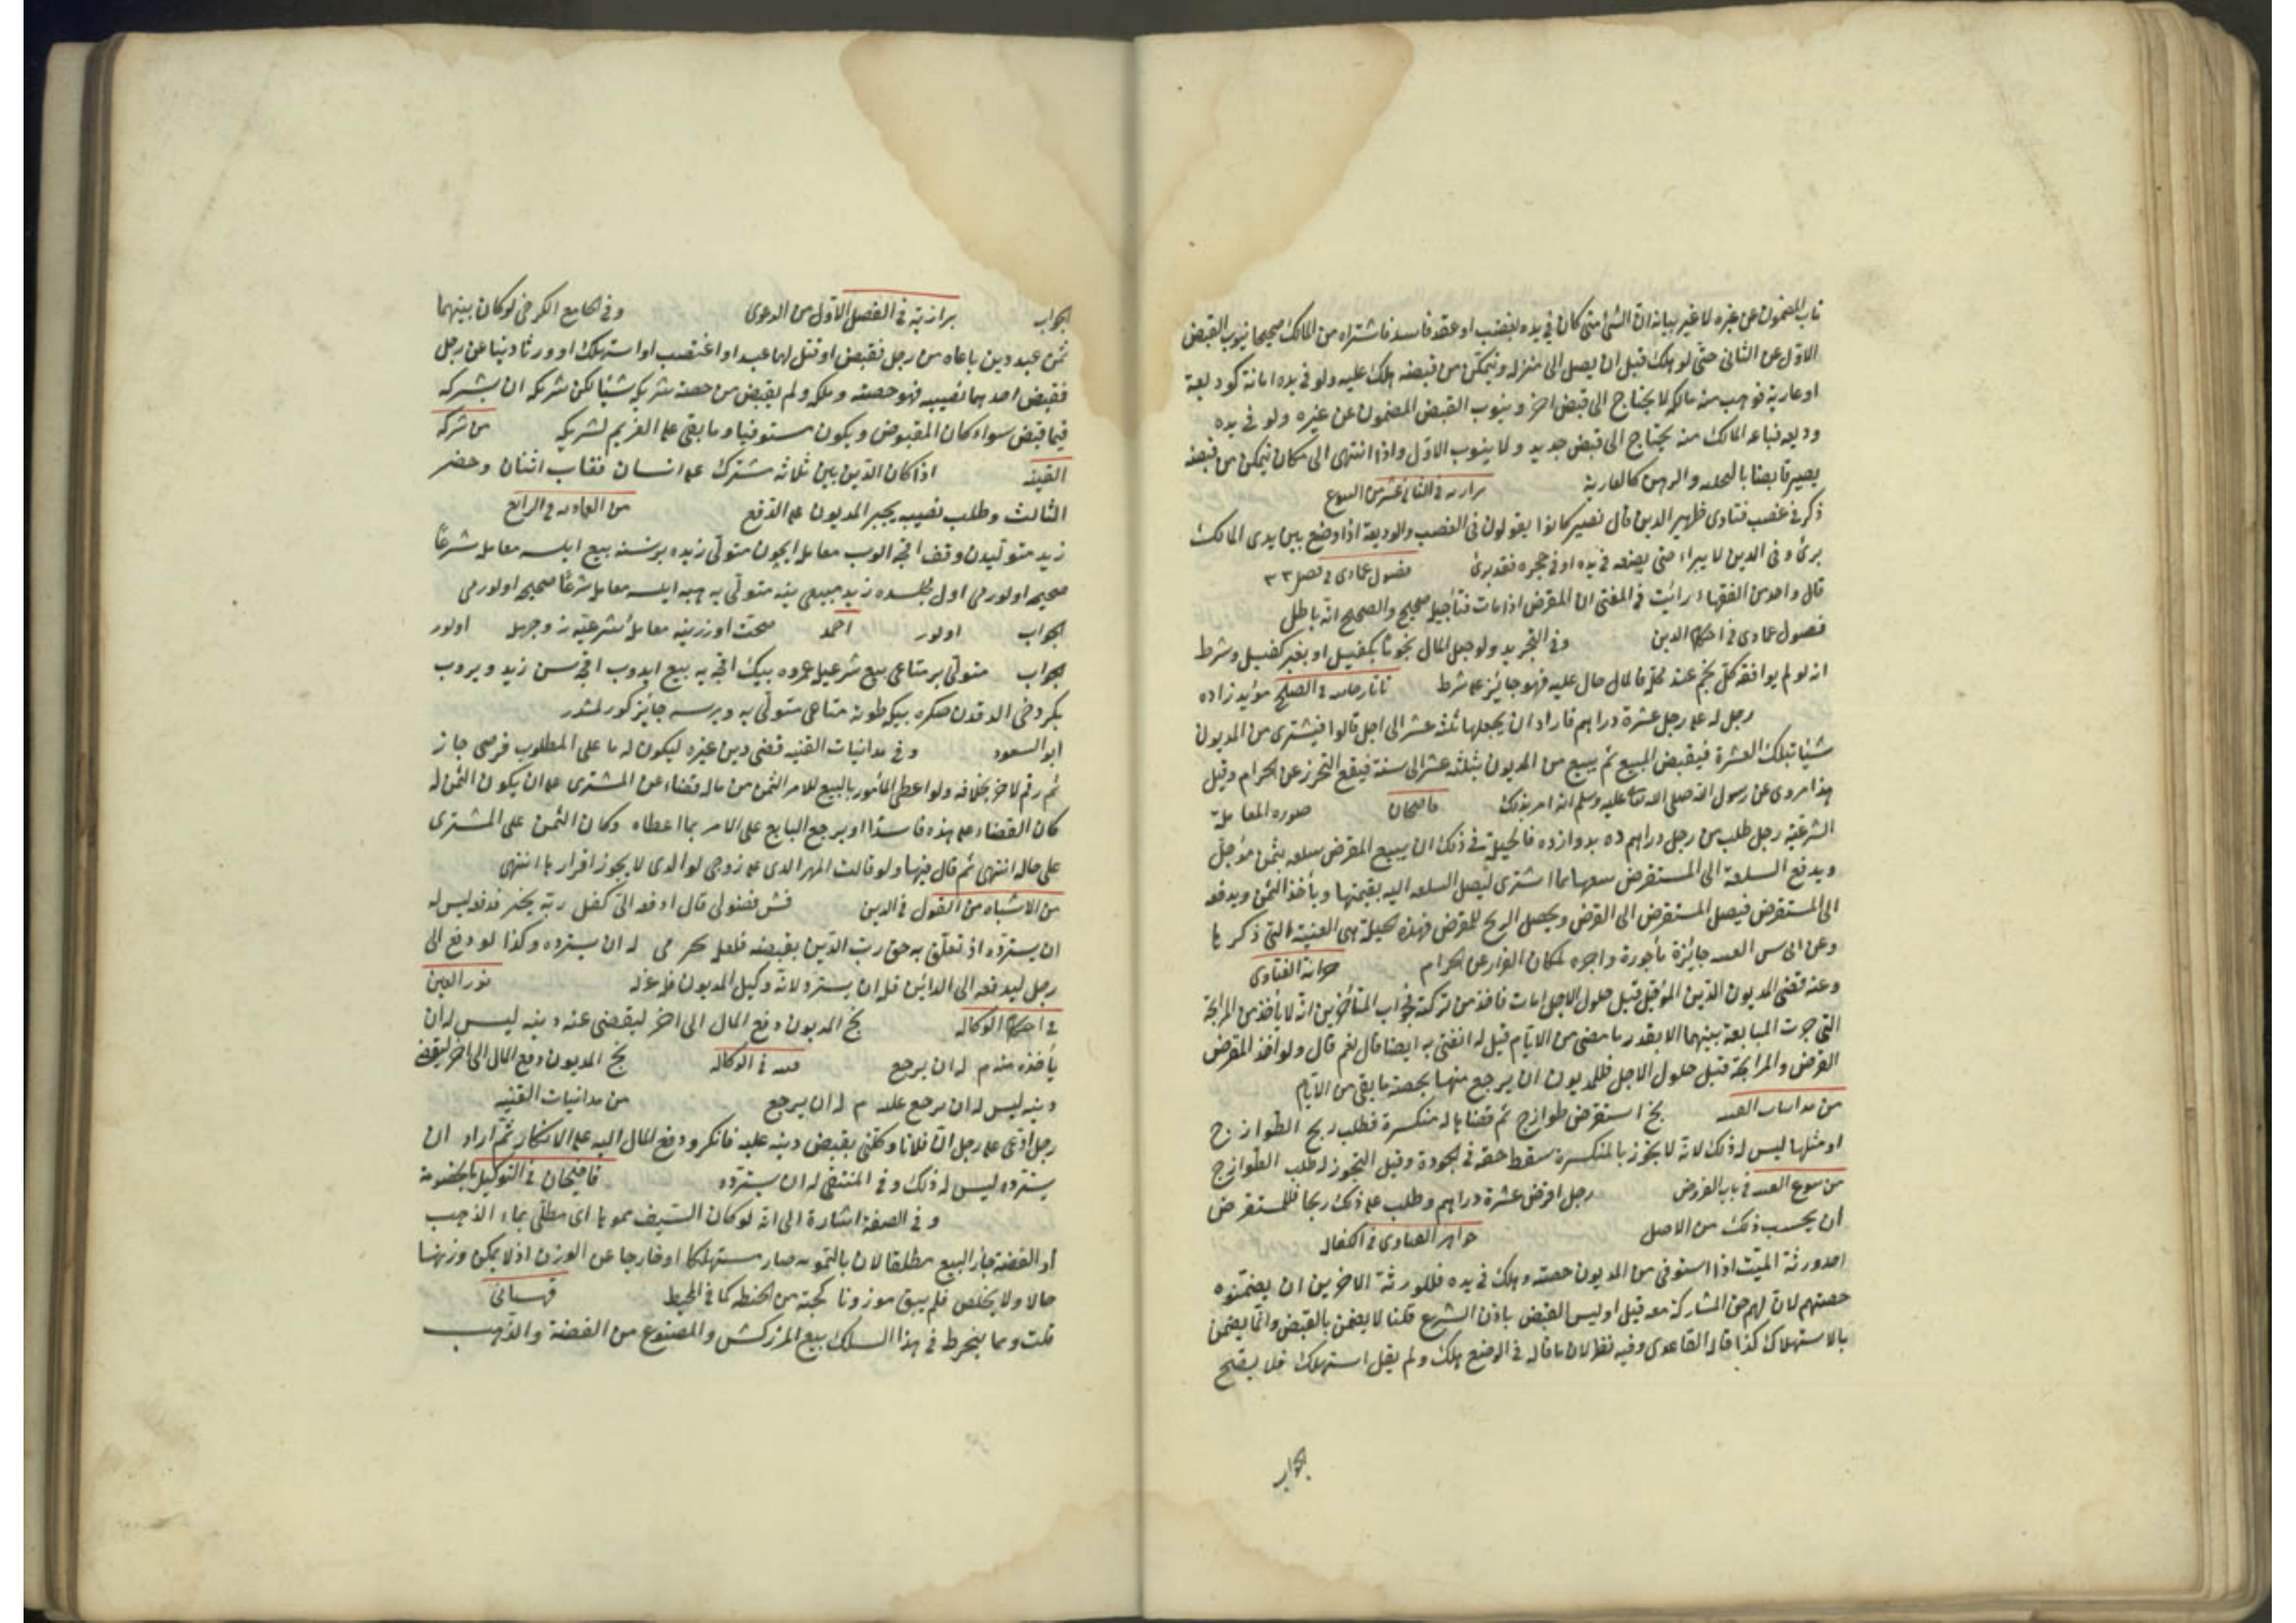 ناب المضمون عن غيره لا غير بيانه ان الشئ متى كان فى يده بغصب او عقد فاسد فاشتراه من المالك صحيحا ينوب القبض
الاول عن الثانى حتى لو هلك قبل ان يصل الى منزله ويتمكن من قبضه هلك عليه ولو فى يده امانة كوديعة
او عارية فوهب منه مالكه لا يحتاج الى قبض اخر وينوب القبض المضمون عن غيره ولو فى يده
وديعه فباعه المالك منه يحتاج الى قبض جديد ولا ينوب الاول واذا انتهى الى مكان يتمكن من قبضه
يصير قابضا بالتخليه والرهن كالعارية بزازيه فى الثانى عشر من البيوع
ذكر فى غصب فتاوى ظهير الدين قال نصير كانوا يقولون فى الغصب والوديعة اذا وضع بين يدى المالك
برئ وفى الدين لا يبراء حتى يضعه فى يده او فى حجره فقد برئ فصول عمادى فى فصل ٣٣
قال واحد من الفقهاء رائيت فى المغنى ان المقرض اذا مات فتأجيله صحيح والصحيح انه باطل
فصول عمادى فى احكام الدين وفى التجريد ولو جعل المال نجوما بكفيل او بغير كفيل وشرط
انه لو لم يوافه كل نجم عند محله فالمال حال عليه فهو جائز على شرط تاتارخانيه فى الصلح مؤيد زاده
رجل له على رجل عشرة دراهم فاراد ان يجعلها ثلثه عشر الى اجل قالوا فيشترى من المديون
شيئا بتلك العشرة فيقبض المبيع ثم يبيع من المديون بثلثه عشر الى سنة فيقع التحرز عن الحرام وقيل
هذا مروى عن رسول الله صلى الله تعالى عليه وسلم انه امر بذلك قاضيخان صوره المعاملة
الشرعيه رجل طلب من رجل دراهم ده بدوازده فالحيلة فى ذلك ان يبيع المقرض سلعه بثمن مؤجل
ويدفع السلعة الى المستقرض بيعها بما اشترى لتصل السلعه اليه بقيمتها ويأخذ الثمن ويدفعه
الى المستقرض فيصل المستقرض الى القرض ويحصل الربح للمقرض فهذه الحيلة هى العينة التى ذكرها
وعن ابى س العينه جائزة مأجورة واجره لمكان الفرار عن الحرام خزانة الفتاوى
وعنه قضى المديون الدين المؤجل قبل حلول الاجل او مات فاخذ من تركته فجواب المتأخرين انه لا يأخذ من المرابحة
التى جرت المبايعة بينهما الا بقدر ما مضى من الايام قيل له اتفتى به ايضا قال نعم قال ولو اخذ المقرض
القرض والمرابحة قبل حلول الاجل فللمديون ان يرجع منها بحصة ما بقى من الايام
من مداينات القنيه بخ استقرض طوازج ثم قضاها له منكسرة فطلب ربح الطوازج
او مثلها ليس له ذلك لانه لا يجوز بالمنكسرة سقط حقه فى الجودة وقيل التجوز له طلب الطوازج
من بيوع القنيه فى باب القروض رجل اقرض عشرة دراهم وطلب على ذلك ربحا فللمستقرض
ان يحسب ذلك من الاصل جواهر الفتاوى فى الكفاله
احد ورثة الميت اذا استوفى من المديون حصته وهلك فى يده فللورثة الاخرين ان يضمنوه
حصتهم لان لهم حق المشاركة معه قيل او ليس القبض باذن الشرع قلنا لا يضمن بالقبض وانما يضمن
بالاستهلاك كذا قاله القاعدى وفيه نظر لان ما قاله فى الوضع هلك ولم يقل استهلك فلا يصح
الجواب
الجواب بزازية فى الفصل الاول من الدعوى وفى الجامع الكرخى لو كان بينهما
ثمن عبد دين باعاه من رجل فقبض او قتل لهما عبد او اغتصب او استهلك او ورثا دينا عن رجل
فقبض احدهما نصيبه فهو حصته وملكه ولم يقبض من حصته شريكه شيئا لكن شريكه ان يشركه
فيما قبض سواء كان المقبوض ويكون مستوفيا وما بقى على الغريم لشريكه من شركة
القنيه اذا كان الدين بين ثلاثه مشترك على انسان فغاب اثنان وحضر
الثالث وطلب نصيبه يجبر المديون على الدفع من العماديه فى الرابع
زيد متوليدن وقف اقچه الوب معامله ايچون متولى زيده بر نسنه بيع ايلسه معامله شرعا
صحيحه اولورمى اول مجلسده زيد مبيعى ينه متولى يه هبه ايلسه معامله شرعا صحيحه اولورمى
الجواب اولور احمد صحت اوزرينه معاملۀ شرعيه نه وجهله اولور
الجواب متولى بر متاعى بيع شرعيله عمروه بيك اقچه يه بيع ايدوب اقچه سن زيد ويروب
بكر دخى الدقدن صكره بيكه طونه متاعى متولى يه ويرسه جايز كورلمشدر
ابو السعود وفى مداينات القنيه قضى دين غيره ليكون له ما على المطلوب فرضى جاز
ثم رقم لاخر بخلافه ولو اعطى المأمور بالبيع للامر الثمن من ماله قضاء عن المشترى على ان يكون الثمن له
كان القضاء على هذه فاسدا او يرجع البايع على الامر بما اعطاه وكان الثمن على المشترى
على حاله انتهى ثم قال فيها ولو قالت المهر الذى على زوجى لوالدى لا يجوز اقرارها انتهى
من الاشباه من القول فى الدين فش فضولى قال ادفعه الى كفل ربه يخير فدفع ليس له
ان يسترده اذ تعلق به حق رب الدين بقبضه فلعل حر مى له ان يسترده وكذا لو دفع الى
رجل ليدفعه الى الدائن قبل ان يسترد لانه وكيل المديون فله عزله نور العين
فى احكام الوكاله بخ المديون دفع المال الى اخر ليقضى عنه دينه ليس له ان
يأخذه منه م له ان يرجع قنيه فى الوكاله بخ المديون دفع المال الى اخر ليقضى
دينه ليس له ان يرجع عليه م له ان يرجع من مداينات القنيه
رجل ادعى على رجل ان فلانا وكلنى بقبض دينه عليه فانكر ودفع المال اليه على الانكار ثم اراد ان
يسترده ليس له ذلك وفى المنتقى له ان يسترده قاضيخان فى التوكيل بالخصومة
وفى الصفة اشارة الى انه لو كان السيف مموها اى مطلى بماء الذهب
او الفضة جاز البيع مطلقا لان بالتمويه صار مستهلكا او خارجا عن الوزن اذ لا يمكن وزنها
حالا ولا يخلص فلم يبق موزونا كحبة من الحنطه كما فى المحيط قهستانى
قلت ومما ينخرط فى هذا السلك بيع المزركش والمصنوع من الفضة والذهب